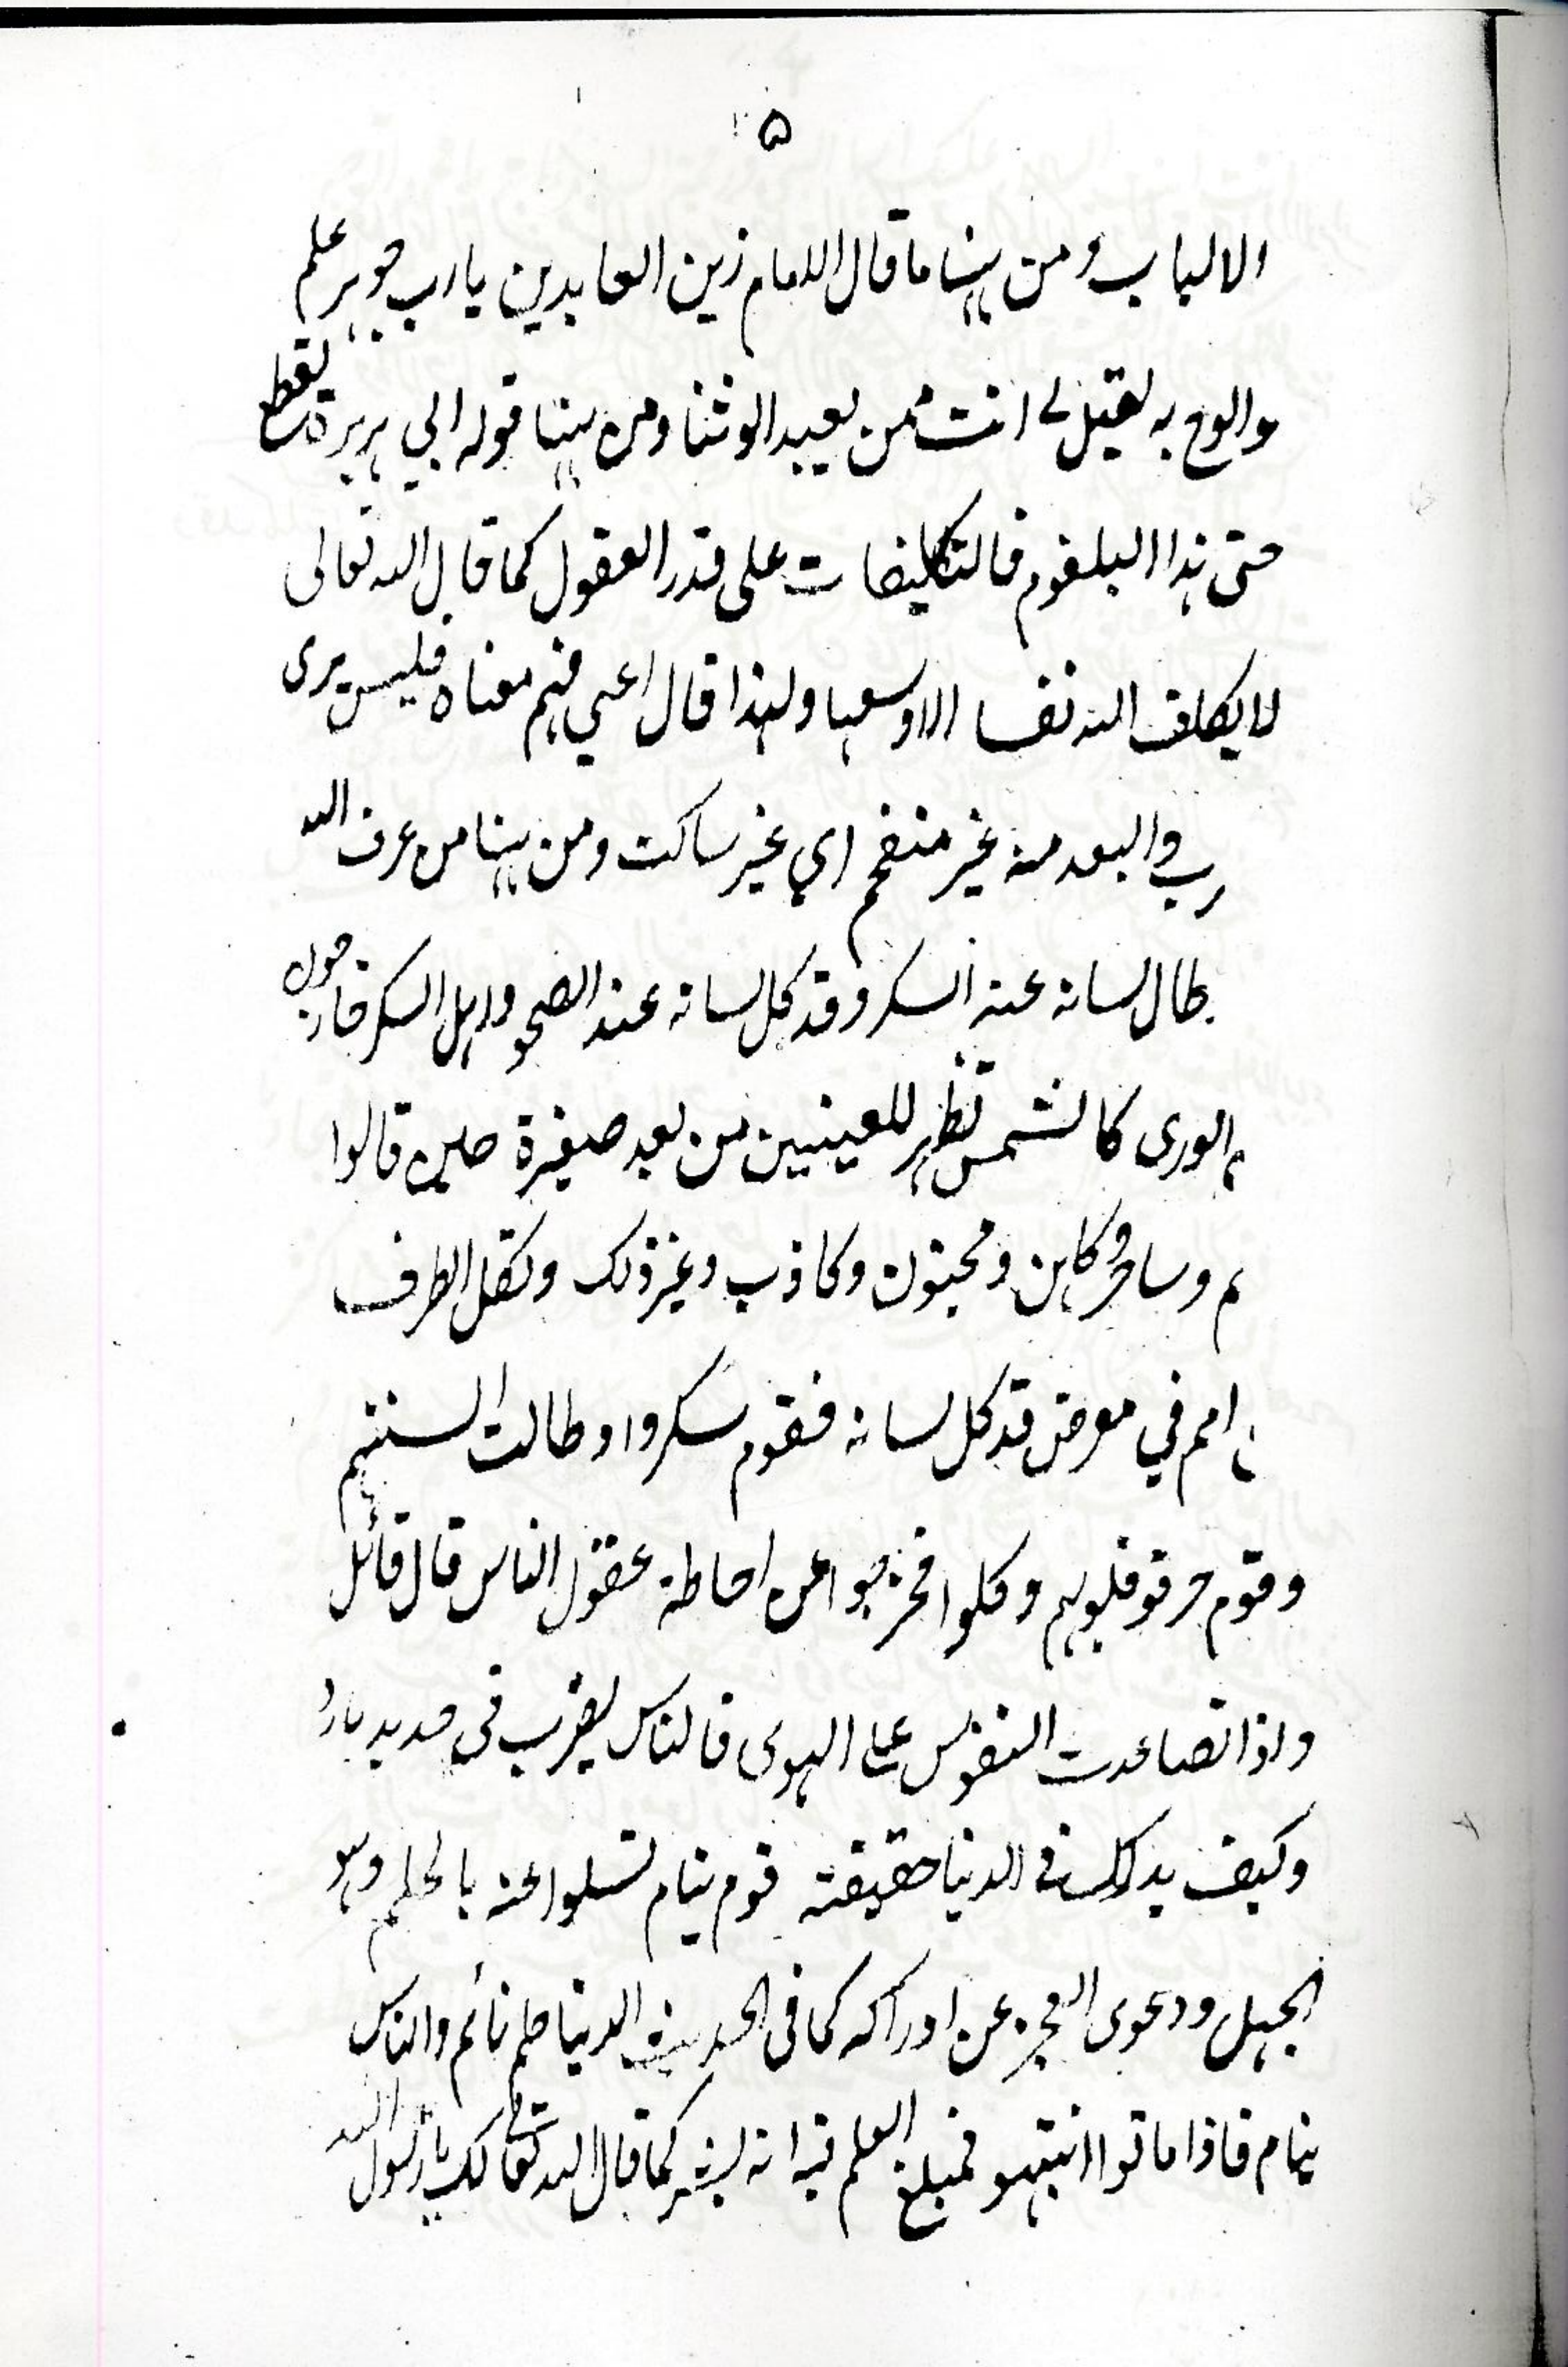 ۵
الالباب ومن ہہنا ما قال الامام زين العابدين يارب جوہر علم
والوح به لقيل لي انت ممن يعبد الوثنا ومن ہہنا قوله ابي ہريرة لقطع
حتى ہذا البلغوم فالتكليفات على قدر العقول كما قال الله تعالى
لا يكلف الله نفسا الا وسعہا ولہذا قال اعيي فہم معناه فليس يرى
رب والبعد منه غير منفحم اي غير ساكت ومن ہہنا من عرف الله
طال لسانه عند السكر وقد كل لسانه عند الصحو واہل السكر
الورى كالشمس تظہر للعينين من بعد صغيرة حين قالوا
م وساحر وكاہن ومجنون وكاذب وغير ذلك وتكل الطرف
امم في معرض قد كل لسانه فقوم سكروا وطالت السنتہم
وقوم حرقو قلوبہم وكلوا فخرجوا عن احاطة عقول الناس قال قائل
واذا تصاعدت النفوس على الہوى فالناس يضرب في حديد بارد
وكيف يدرك في الدنيا حقيقته قوم ينام تسلوا عنه بالحلم وہو
الجہل ودعوى العجز عن ادراكه كما في الحديث الدنيا حلم نائم والناس
ينام فاذا ماتوا انتبہو فمبلغ العلم فيه انه بشر كما قال الله تعالى لك يا رسول الله